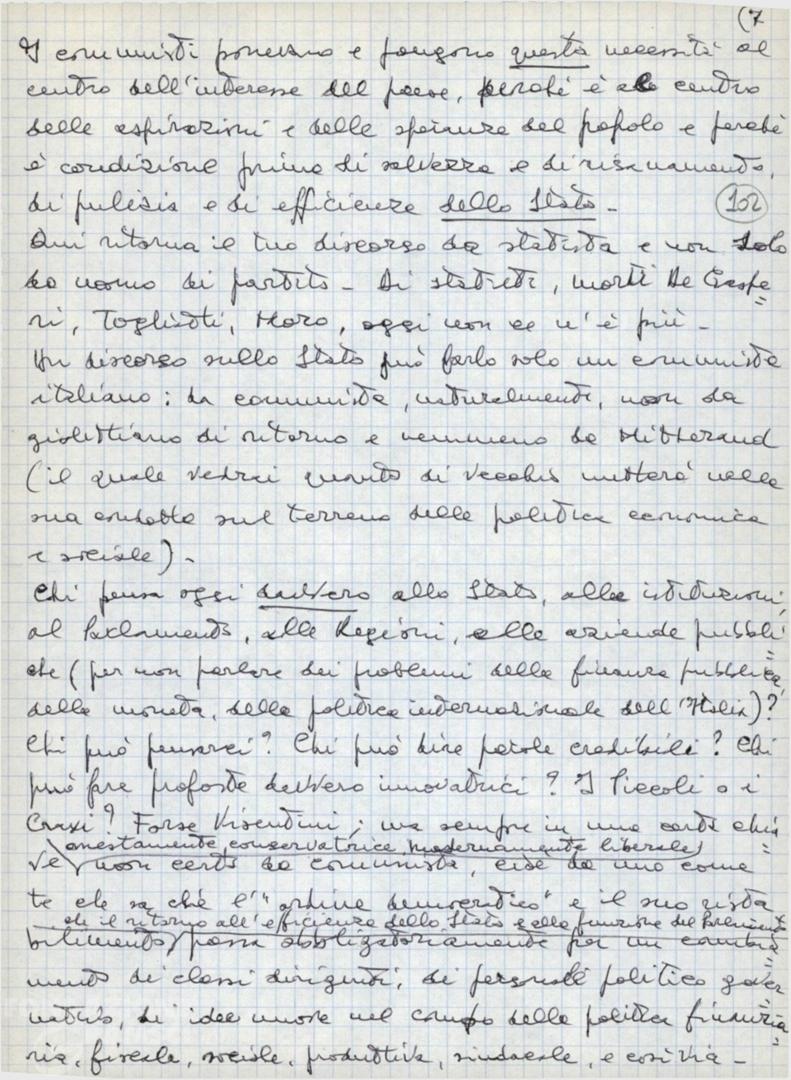 (7
I comunisti ponevano e pongono questa necessità al
centro dell'interesse del paese, perché è al centro
delle aspirazioni e delle speranze del popolo e perché
è condizione prima di salvezza e di risanamento,
di pulizia e di efficienza dello Stato –
102
Qui ritorna il tuo discorso da statista e non solo
da uomo di partito – Di statisti, morti De Gaspe=
ri, Togliatti, Moro, oggi non ce n'è più –
Un discorso sullo Stato può farlo solo un comunista
italiano: da comunista, naturalmente, non da
giolittiano di ritorno e nemmeno da Mitterand
(il quale vedrai quanto di vecchio metterà nella
sua condotta sul terreno della politica economica
e sociale) –
Chi pensa oggi davvero allo Stato, alle istituzioni,
al Parlamento, alle Regioni, alle aziende pubbli=
che (per non parlare dei problemi della finanza pubblica,
della moneta, della politica internazionale dell'Italia)?
Chi può pensarci? Chi può dire parole credibili? Chi
può fare proposte davvero innovatrici? I Piccoli o i
Craxi? Forse Visentini; ma sempre in una certa chia=
(onestamente, conservatrice, modernamente liberale)
ve, non certo da comunista, cioè da uno come
te che sa che l'"ordine democratico" e il suo rista=
che il ritorno all'efficienza dello Stato e alla funzione del Parlamento
bilimento, passa obbligatoriamente per un cambia=
mento di classi dirigenti, di personale politico gover=
nativo, di idee nuove nel campo della politica finanzia=
ria, fiscale, sociale, produttiva, sindacale, e così via –